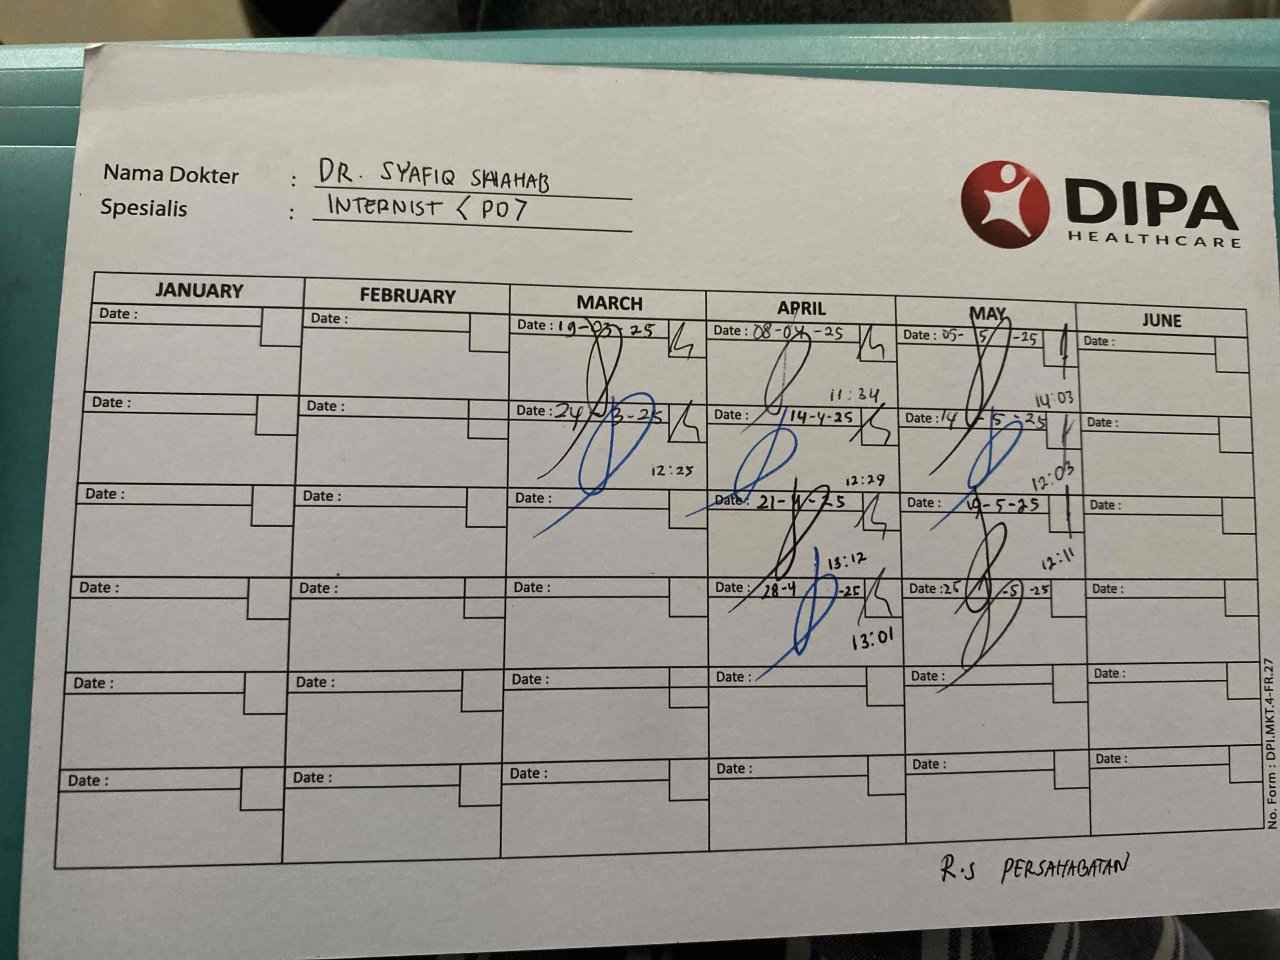 Nama Dokter : DR. SYAFIQ SHAHAB
Spesialis : INTERNIST < PD7
DIPA
HEALTHCARE
JANUARY FEBRUARY MARCH APRIL MAY JUNE
Date : Date : Date : 19-03-25 Date : 08-04-25 Date : 05-5-25 Date :
11:34 14:03
Date : Date : Date : 24-3-25 Date : 14-4-25 Date : 14-5-25 Date :
12:25 12:29 12:03
Date : Date : Date : Date : 21-4-25 Date : 19-5-25 Date :
13:12 12:11
Date : Date : Date : Date : 28-4-25 Date : 25-5-25 Date :
13:01
Date : Date : Date : Date : Date : Date :
Date : Date : Date : Date : Date : Date :
No. Form : DPI.MKT.4-FR.27
R.S PERSAHABATAN